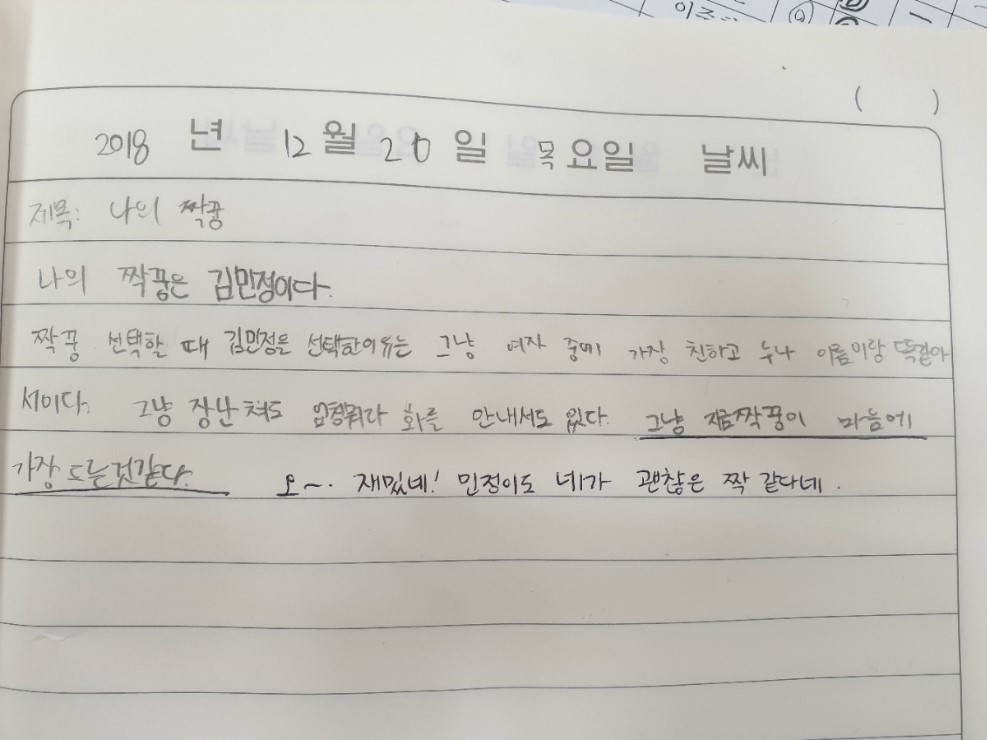 이주...
( )
2018 년 12 월 20 일 목 요일 날씨
제목: 나의 짝꿍
나의 짝꿍은 김민정이다.
짝꿍 선택할 때 김민정을 선택한이유는 그냥 여자 중에 가장 친하고 누나 이름이랑 똑같아
서이다. 그냥 장난 쳐도 화를 안내서도 있다. 그냥 지금짝꿍이 마음에
가장 드는것같다.
오~. 재밌네! 민정이도 네가 괜찮은 짝 같다네.